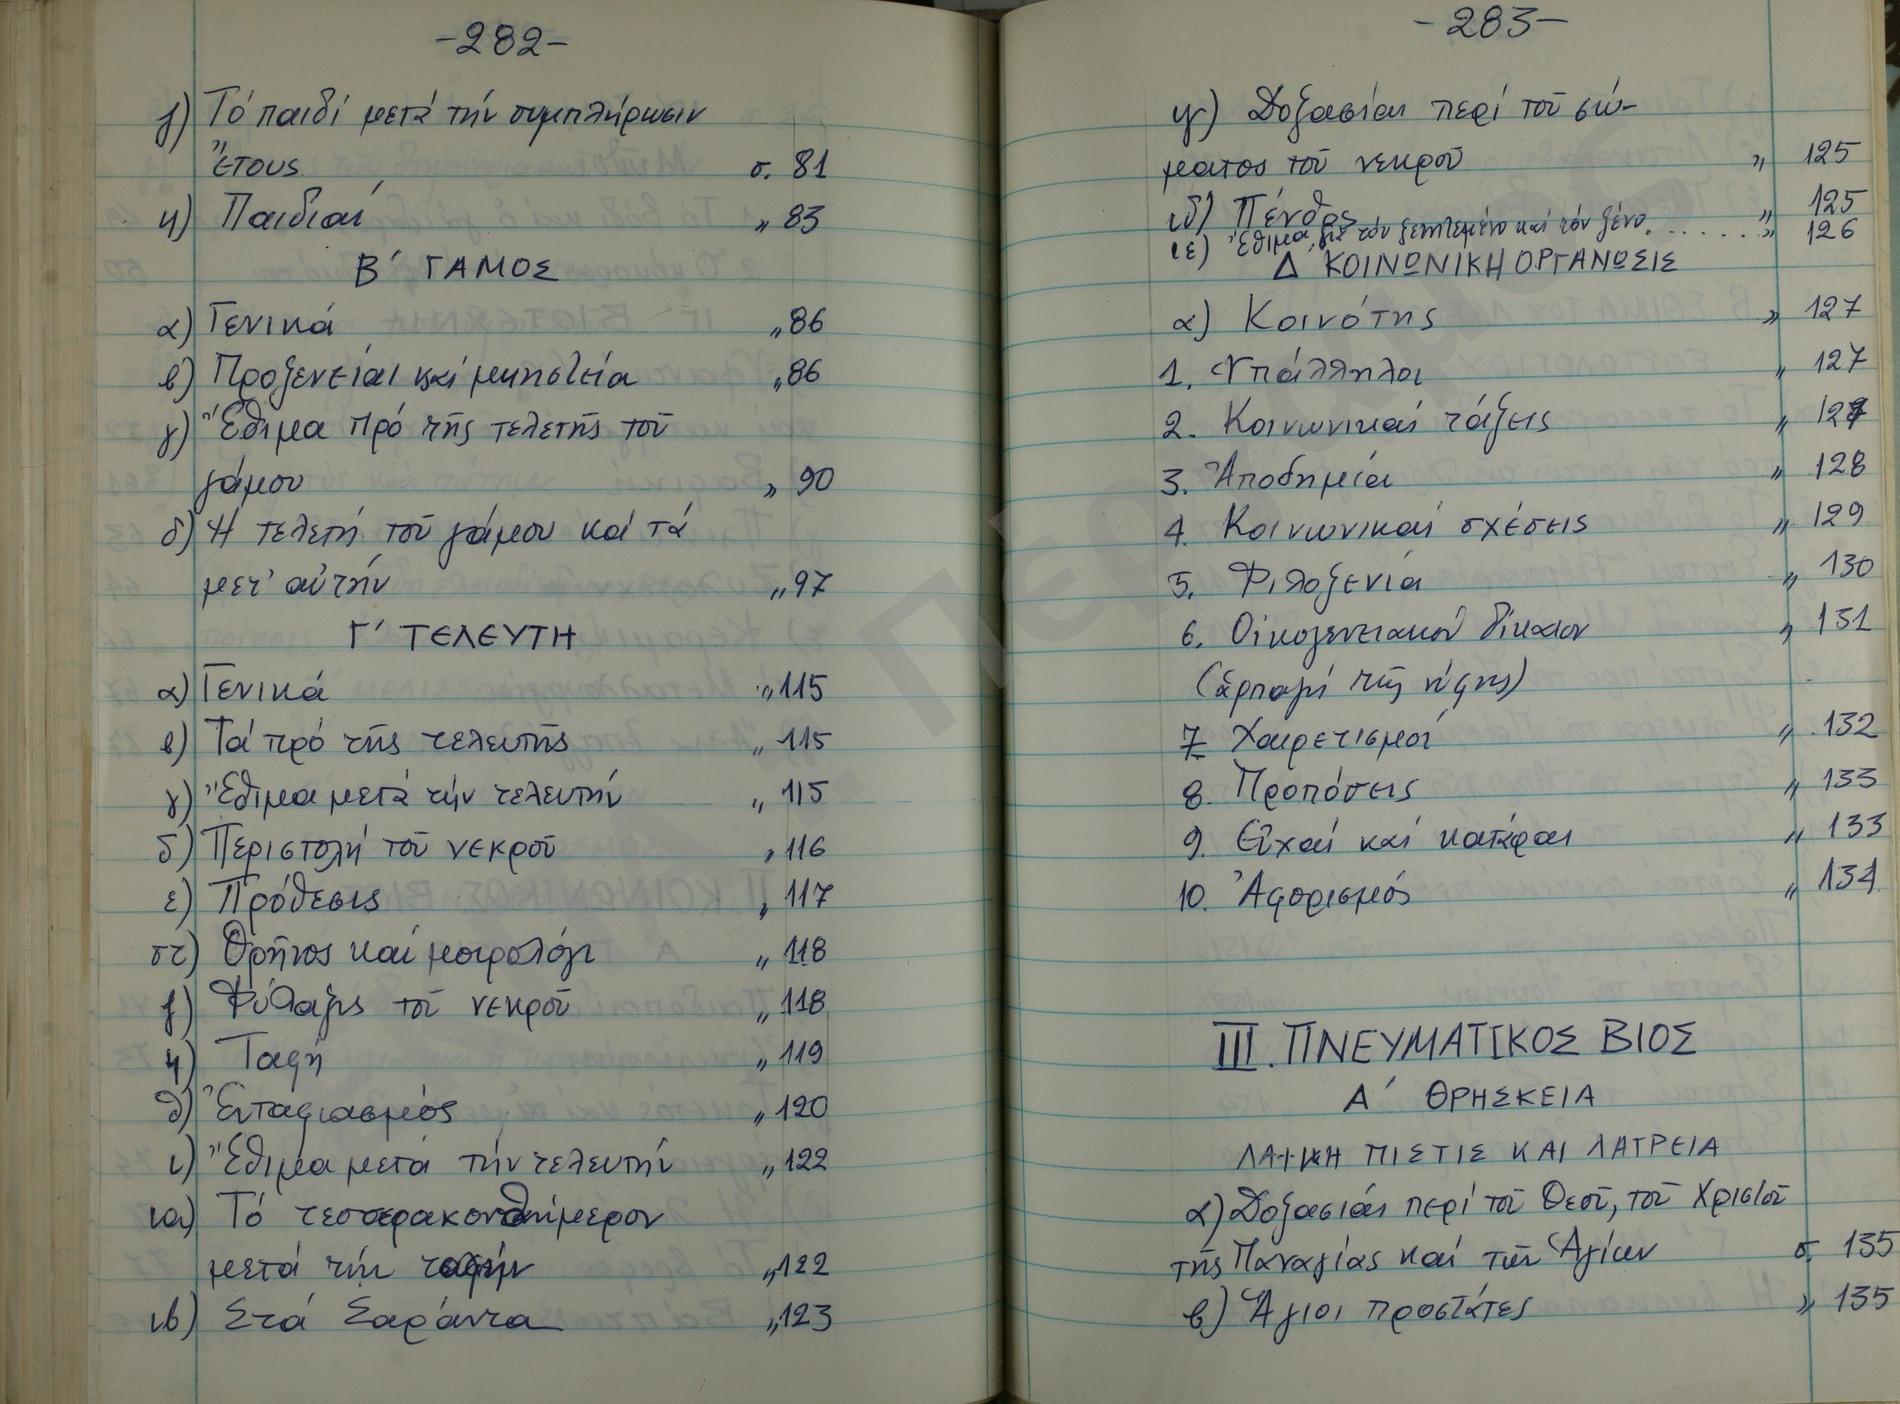 -282-
ζ) Τό παιδί μετά τήν συμπλήρωσιν
ἔτους σ. 81
η) Παιδιαί „ 83
Β΄ ΓΑΜΟΣ
α) Γενικά „ 86
β) Προξενεῖαι καί μνηστεία „ 86
γ) Ἔθιμα πρό τῆς τελετῆς τοῦ
γάμου „ 90
δ) Ἡ τελετή τοῦ γάμου καί τά
μετ' αὐτήν „ 97
Γ΄ ΤΕΛΕΥΤΗ
α) Γενικά „ 115
β) Τά πρό τῆς τελευτῆς „ 115
γ) Ἔθιμα μετά τήν τελευτήν „ 115
δ) Περιστολή τοῦ νεκροῦ „ 116
ε) Πρόθεσις „ 117
στ) Θρῆνος καί μοιρολόγι „ 118
ζ) Φύλαξις τοῦ νεκροῦ „ 118
η) Ταφή „ 119
θ) Ἐνταφιασμός „ 120
ι) Ἔθιμα μετά τήν τελευτήν „ 122
ια) Τό τεσσερακονθήμερον
μετά τήν ταφήν „ 122
ιβ) Στά Σαράντα „ 123
-283-
ιγ) Δοξασίαι περί τοῦ σώ-
ματος τοῦ νεκροῦ „ 125
ιδ) Πένθος „ 125
ιε) Ἔθιμα γιά τόν ξενητεμένο καί τόν ξένο. ...... „ 126
Δ΄ ΚΟΙΝΩΝΙΚΗ ΟΡΓΑΝΩΣΙΣ
α) Κοινότης „ 127
1. Ὑπάλληλοι „ 127
2. Κοινωνικαί τάξεις „ 127
3. Ἀποδημία „ 128
4. Κοινωνικαί σχέσεις „ 129
5. Φιλοξενία „ 130
6. Οἰκογενειακόν δίκαιον „ 131
(ἁρπαγή τῆς νύφης)
7. Χαιρετισμοί „ 132
8. Προπόσεις „ 133
9. Εὐχαί καί κατάραι „ 133
10. Ἀφορισμός „ 134
III. ΠΝΕΥΜΑΤΙΚΟΣ ΒΙΟΣ
Α΄ ΘΡΗΣΚΕΙΑ
ΛΑΪΚΗ ΠΙΣΤΙΣ ΚΑΙ ΛΑΤΡΕΙΑ
α) Δοξασίαι περί τοῦ Θεοῦ, τοῦ Χριστοῦ
τῆς Παναγίας καί τῶν Ἁγίων σ. 135
β) Ἅγιοι προστάτες „ 135